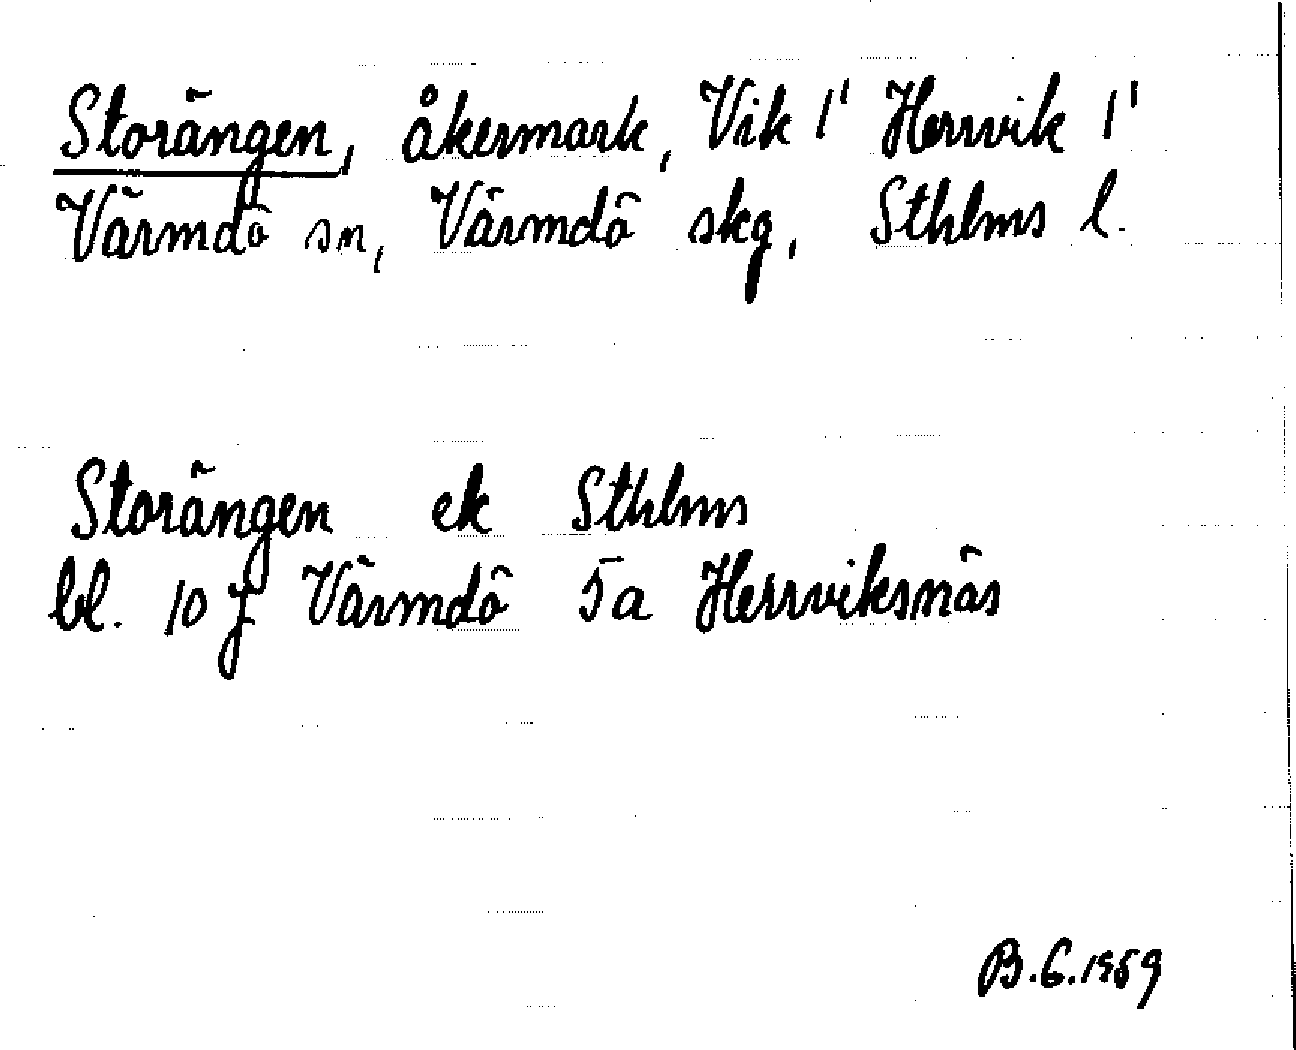 Storängen, åkermark, Vik 1¹ Herrvik 1¹
Värmdö sn, Värmdö skg, Sthlms l.
Storängen ek Sthlms
bl. 10 J Värmdö 5a Herrviksnäs
B.G.1959